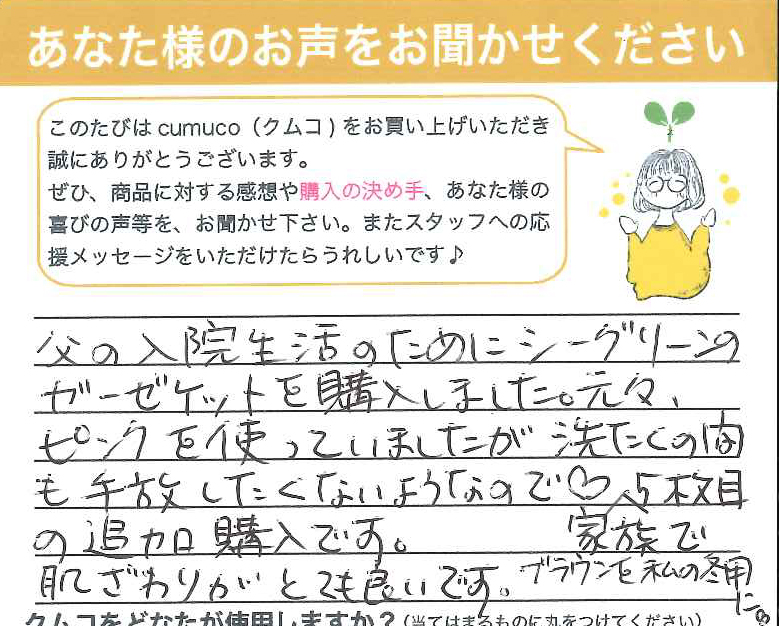 あなた様のお声をお聞かせください
このたびは cumuco（クムコ）をお買い上げいただき
誠にありがとうございます。
ぜひ、商品に対する感想や購入の決め手、あなた様の
喜びの声等を、お聞かせ下さい。またスタッフへの応
援メッセージをいただけたらうれしいです♪
父の入院生活のためにシーグリーンの
ガーゼケットを購入しました。元々、
ピンクを使っていましたが洗たくの間
も手放したくないようなので♡ 5枚目
の追加購入です。 家族で
肌ざわりがとても良いです。 ブラウンを私の冬用に。
クムコをどなたが使用しますか？（当てはまるものに丸をつけてください）